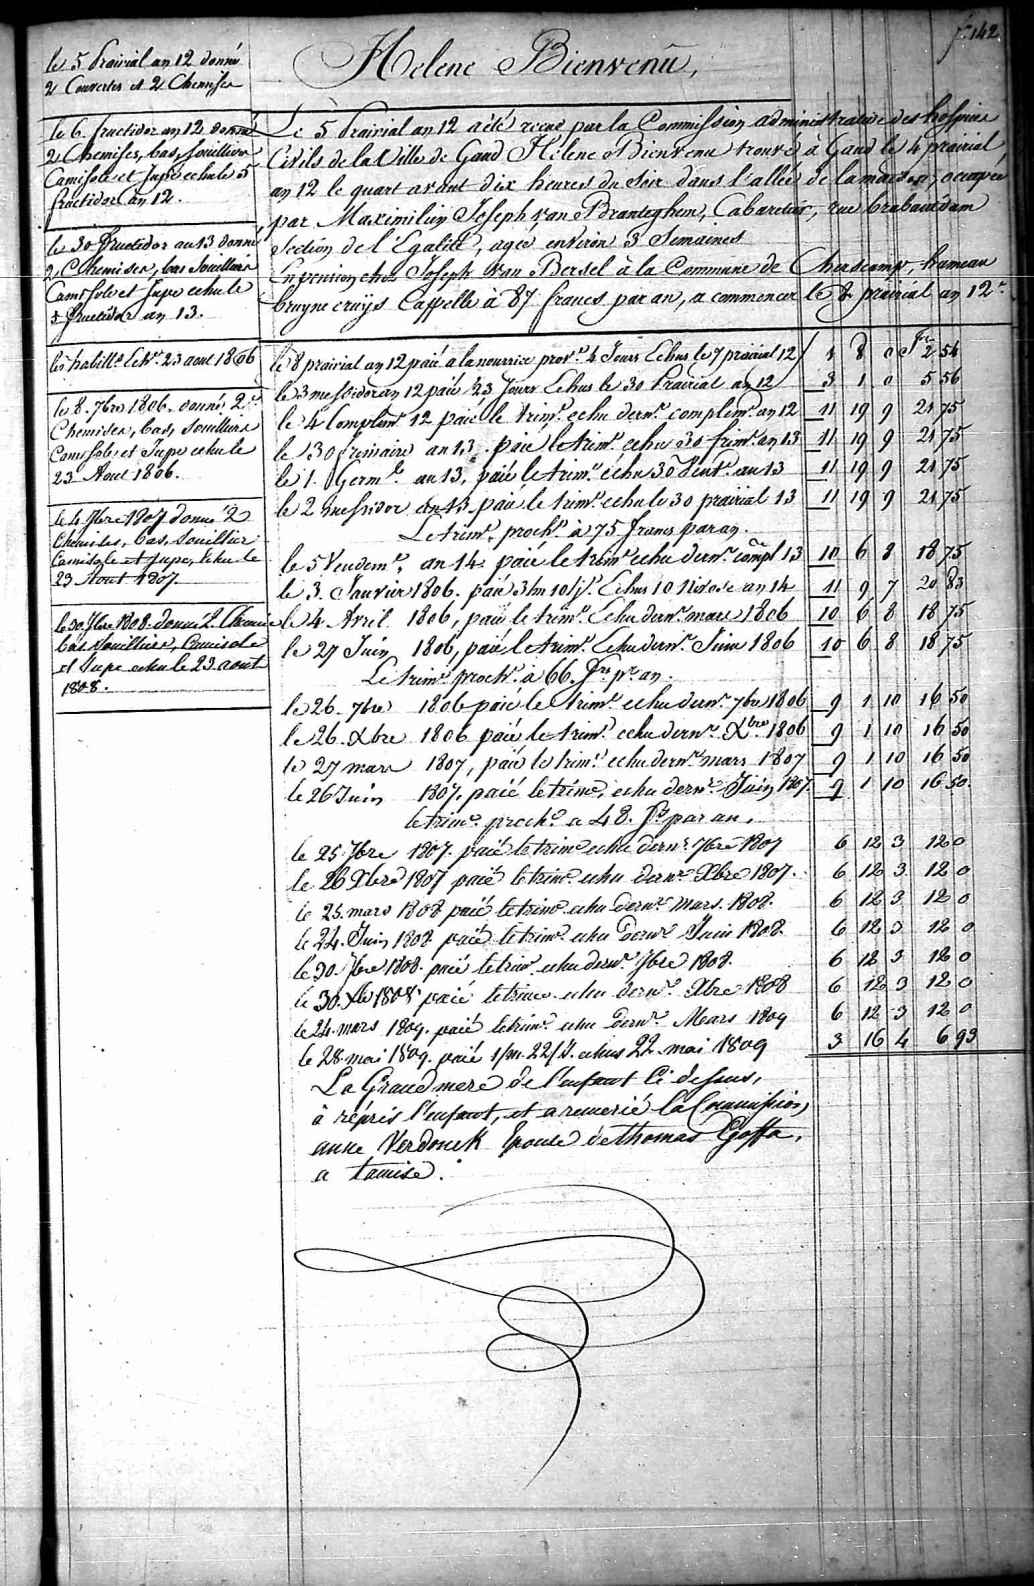 f. 142
Helene Bienvenu,
le 5 Prairial an 12 donné
2 Couvertes et 2 Chemises
le 6. fructidor an 12 donné
2 Chemises, bas, souilliers
Camisole et Jupe echu le 5
fructidor an 12.
le 30 fructidor an 13 donné
2 Chemises, bas souilliers
Camisole et Jupe echu le
5 fructidor an 13.
23 aout 1806
le 8. 7bre 1806. donné 2
Chemises, bas, souilliers
Camisole et Jupe echu le
23 Aout 1806.
le 4 7bre 1807 donné 2
Chemises, bas, souillier
Camisole et Jupe, echu le
23 Aout 1807
le 30 7bre 1808 donné 2 Chemise
bas souilliers, Camisole
et Jupe echu le 23 aout
1808.
Le 5 Prairial an 12 a été recue par la Commission administrative des hospices
Civils de la Ville de Gand Hélene Bienvenu trouvé à Gand le 4 prairial
an 12 le quart avant dix heures du Soir dans l'allée de la maison, occupée
par Maximilien Joseph van Branteghem, Cabaretier, rue brabandam
Section de l'Egalité, agée environ 3 Semaines
En pension chez Joseph van Bersel à la Commune de Cherscamp, hameau
bruyne cruys Cappelle à 87 francs par an, a commencer le 8 prairial an 12
le 8 prairial an 12 paié a la nourrice prov. 4 Jours Echus le 7 prairial 12 1 8 0 fr 2 54
le 3 messidor an 12 paié 23 Jours Echus le 30 Prairial an 12 3 1 0 5 56
le 4 Complem. 12 paié le trim. echu dern. complem. an 12 11 19 9 21 75
le 30 frimaire an 13. paié le trim. echu 30 frim. an 13 11 19 9 21 75
le 1. Germ.l an 13, paié le trim. echu 30 Vent. an 13 11 19 9 21 75
le 2 messidor an 13 paié le trim. echu le 30 prairial 13 11 19 9 21 75
Le trim. proch. à 75 francs par an.
le 5 Vendem., an 14 paié le trim. echu dern. compl 13 10 6 8 18 75
le 3. Janvier 1806. paié 3/m 10/j. Echus 10 Nivose an 14 11 9 7 20 83
le 4 Avril 1806, paié le trim. Echu dern. mars 1806 10 6 8 18 75
le 27 Juin 1806, paié le trim. Echu dern. Juin 1806 10 6 8 18 75
Le trim. proch. à 66 frs pr an.
le 26. 7bre 1806 paié le trim. echu dern. 7bre 1806 9 1 10 16 50
le 26. Xbre 1806 paié le trim. echu dern. Xbre 1806 9 1 10 16 50
le 27 mars 1807, paié le trim. echu dern. mars 1807 9 1 10 16 50
le 26 Juin 1807. paié le trim. echu dern. Juin 1807 9 1 10 16 50
le trim. proch. a 48. fr par an.
le 25 7bre 1807. paié le trim. echu dern. 7bre 1807 6 12 3 12 0
le 26 Xbre 1807 paié le trim. echu dern. Xbre 1807. 6 12 3 12 0
le 25. mars 1808 paié le trim. echu dern. Mars. 1808. 6 12 3 12 0
le 24. Juin 1808 paié le trim. echu dern. Juin 1808. 6 12 3 12 0
le 30. 7bre 1808. paié le trim. echu dern. 7bre 1808. 6 12 3 12 0
le 30. Xbre 1808 paié le trim. echu dern. Xbre 1808 6 12 3 12 0
le 24. mars 1809. paié le trim. echu dern. Mars 1809 6 12 3 12 0
le 28. mai 1809. paié 1/m 22/j. echus 22. mai 1809 3 16 4 6 93
La Grand mere de l'enfant Ci dessus,
à repris l'enfant, et a remerié la Commission,
anne Verdonck Epouse de Thomas Goffa,
a tamise.